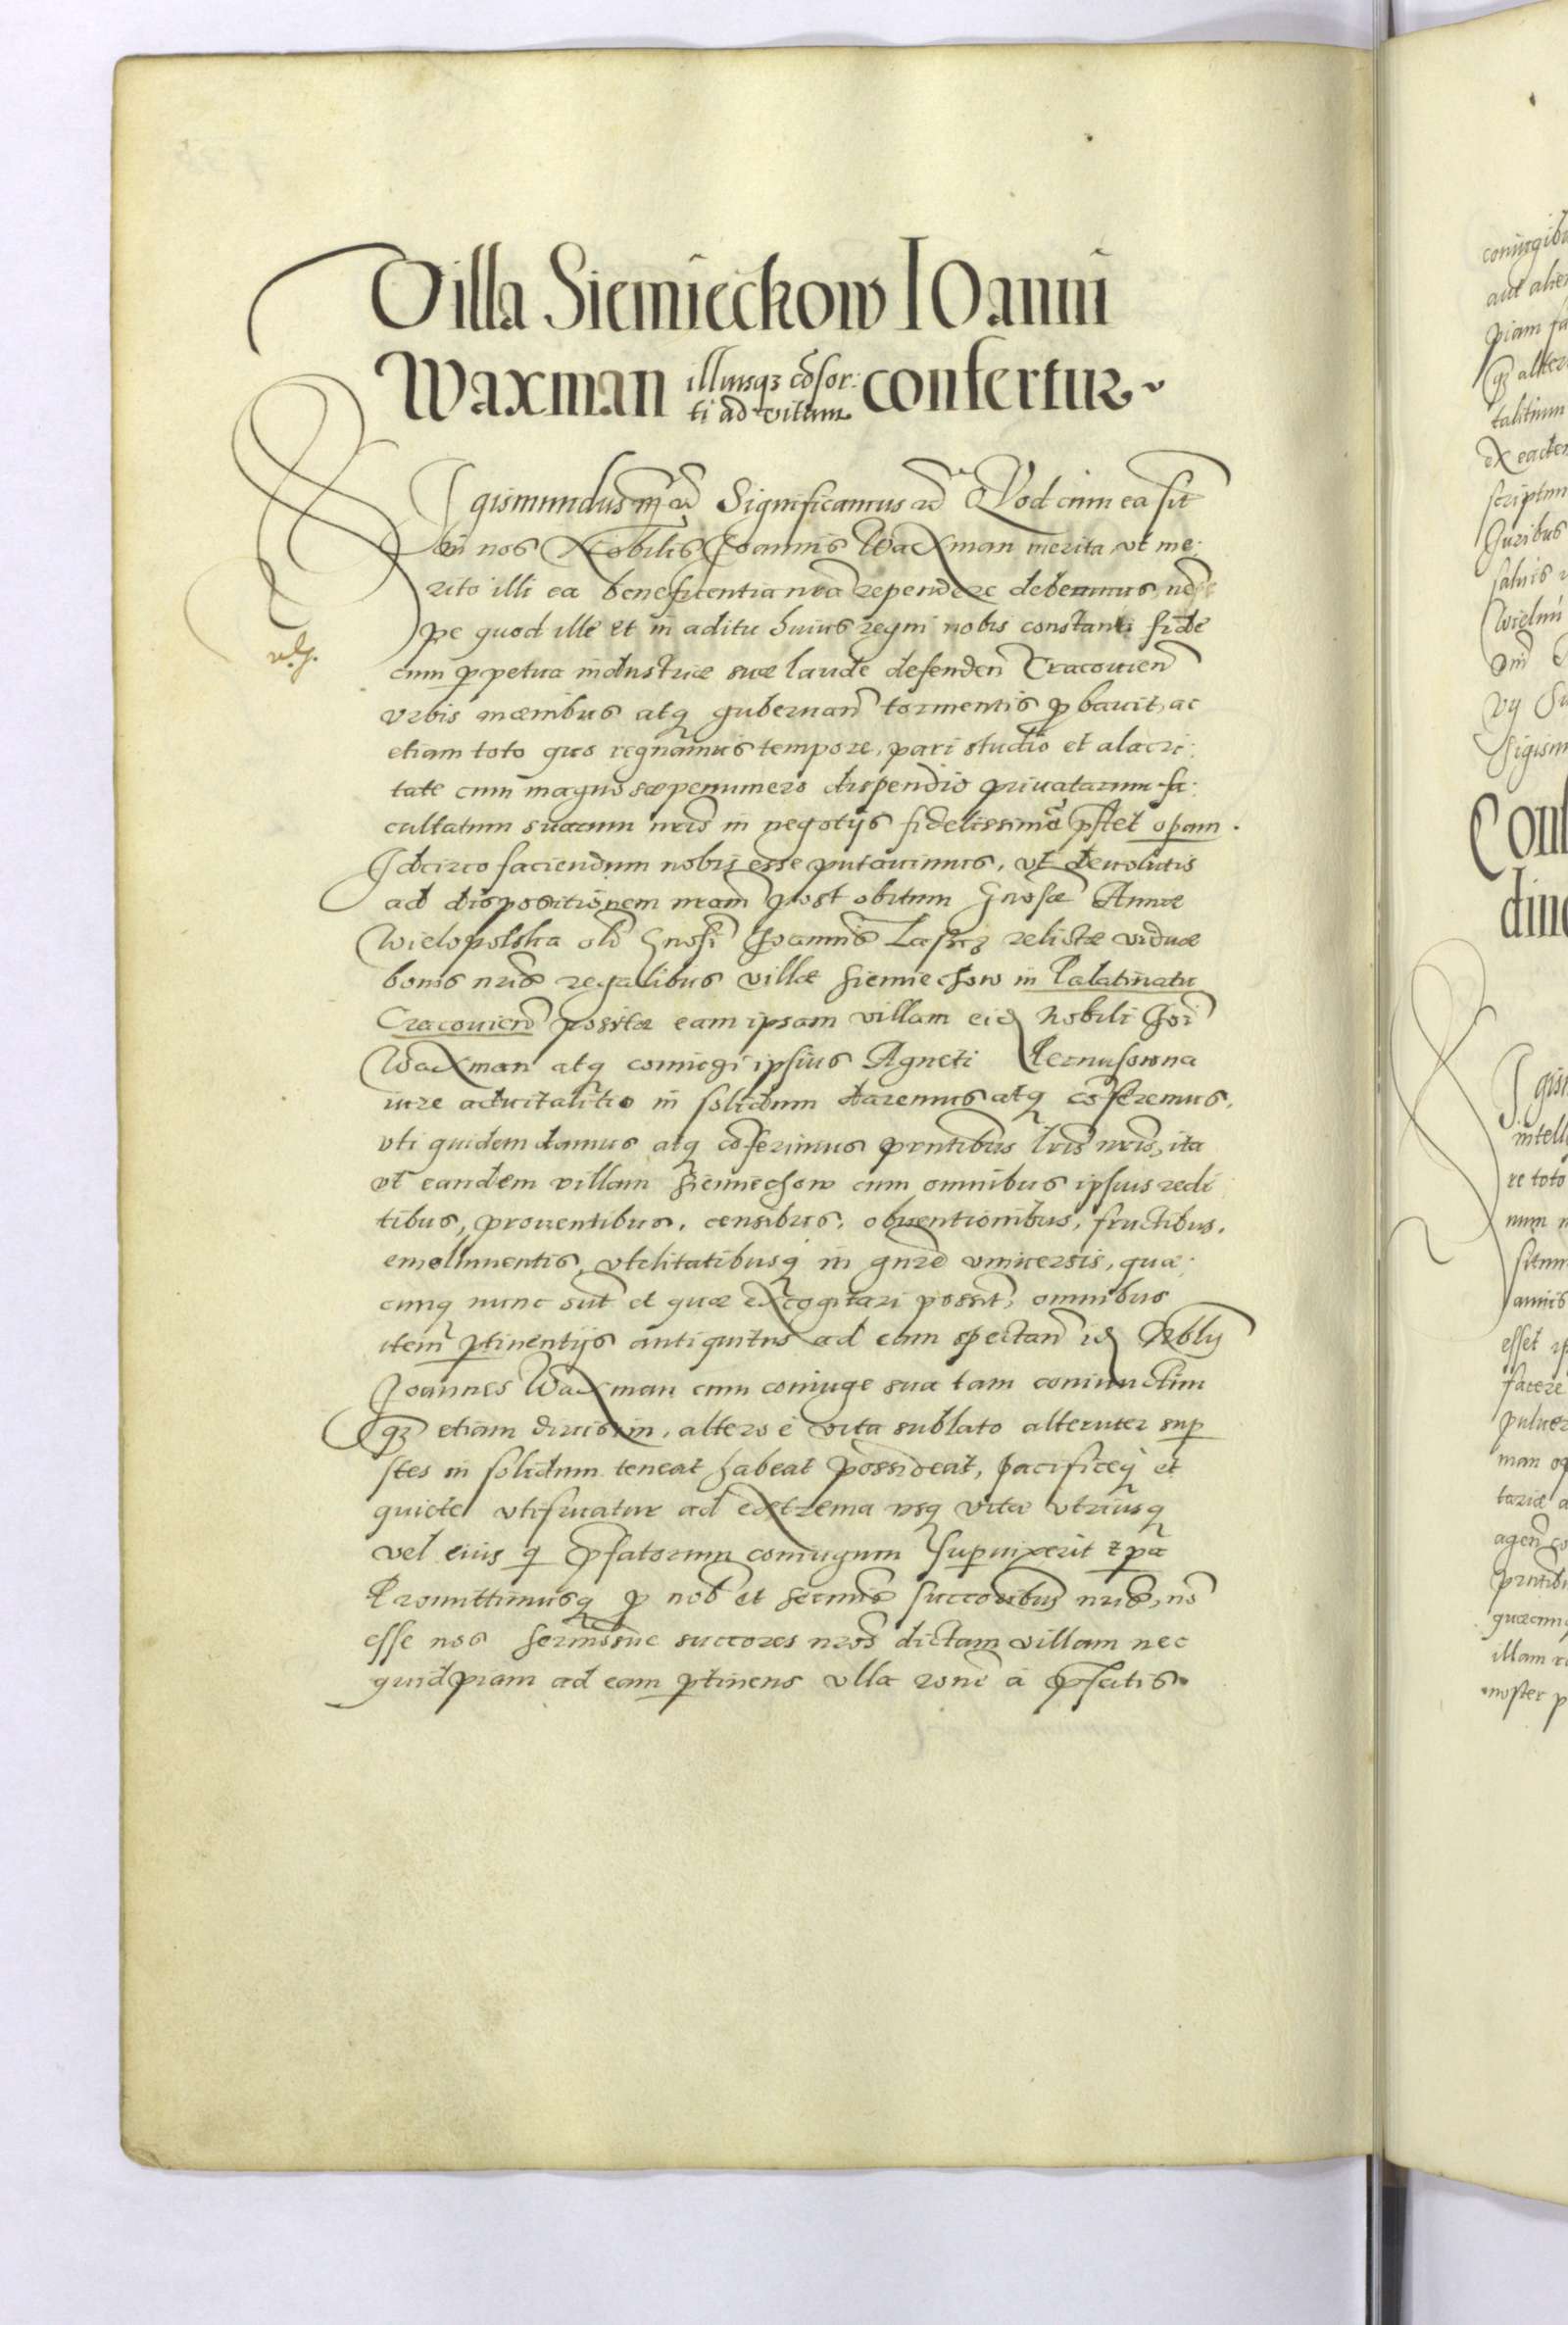 Villa Siemieckow IOanni
Waxman illiusqꝫ cōsor:
ti ad vitam confertur
Sigismundus Significamus QVod cum ea sit
in nos Nobilis Joannis Waxman merita vt me:
rito illi ea beneficentia nrā rependere debeamus, nē
pe quod ille et in aditu huius regni nobis constanti fide
cum ꝑpetua industriæ suæ laude defendeñ Cracovieñ
vrbis mœnibus atqꝫ gubernañ tormentis ꝓbavit, ac
etiam toto quo regnamus tempore, pari studio et alacri:
tate cum magno sæpenumero dispendio privatarum fa:
cultatum suarum nrīs in negotijs fidelissimā pstet opam.
Jdcirco faciendum nobis esse putavimus, vt devolutis
ad dispositionem nrām post obitum Gnosæ Annæ
Wielopolska olī Gnosi Joannis Laszcz relictæ viduæ
bonis nrīs regalibus villæ Siemiechow in Palatinatu
Cracovieñ positæ eam ipsam villam eid Nobili Joī
Waxman atqꝫ coniugi ipsius Agneti Pernusowna
iure advitalitio in solidum daremus atqꝫ cōferemus,
vti quidem damus atqꝫ cōferimus pntibus lrīs nrīs, ita
vt eandem villam Siemiechow cum omnibus ipsius redi
tibus, proventibus, censibus, obventionibus, fructibus,
emolumentis, vtilitatibusqꝫ in gnrē vniversis, quæ:
cunqꝫ nunc sūt et quæ excogitari possūt, omnibus
item ꝑtinentijs antiquitus ad eam spectañ id Nblis
Joannes Waxman cum coniuge sua tam coniunctim
qꝫ etiam divisim, altero è vita sublato alteruter sup
stes in solidum teneat habeat possideat, pacificeqꝫ et
quiete vtifruatur ad extrema vsqꝫ vitæ vtriusqꝫ
vel eius qi pfatorum coniugum supvixerit tpā
Promittimusqꝫ ꝓ nob et sermīs succoribus nrīs, nō
esse nos sermosve succores nrōs dictam villam nec
quidpiam ad eam ꝑtinens vlla rōne à pfatis